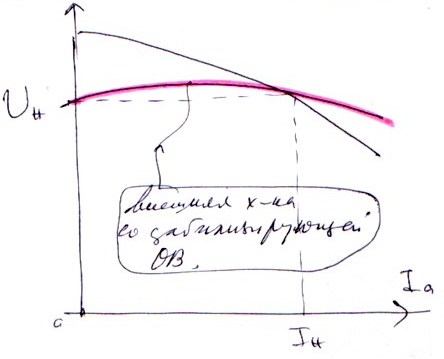 Uн
внешняя х-ка
со стабилизирующей
ОВ.
Iа
0
Iн